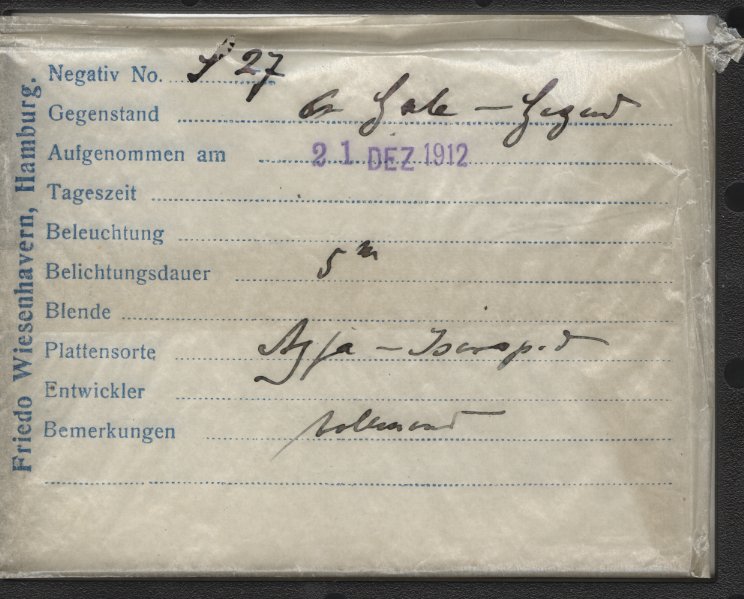 Friedo Wiesenhavern, Hamburg.
Negativ No. 27
Gegenstand
Aufgenommen am 21 DEZ 1912
Tageszeit
Beleuchtung
Belichtungsdauer 5 m
Blende
Plattensorte Agfa -
Entwickler
Bemerkungen